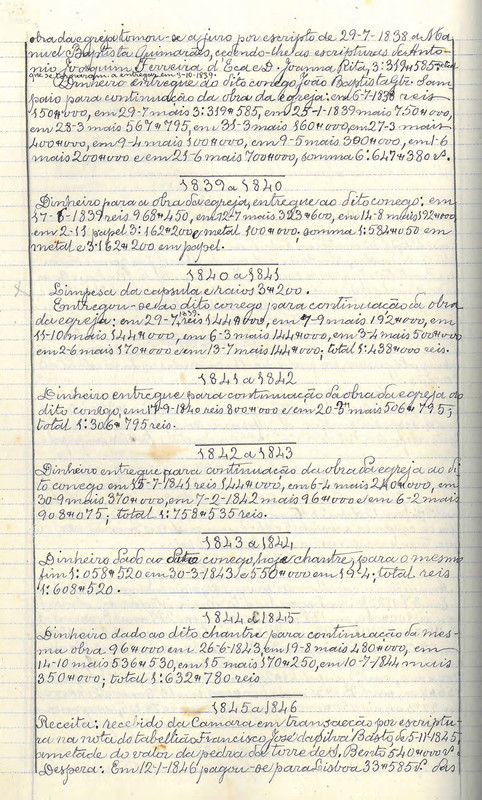 obra da egreja tomou-se a juro por escripto de 29-7-1838 a Ma-
nuel Baptista Guimarães, cedendo-lhe as escripturas de Anto-
nio Joaquim Ferreira d'Eça e D. Joanna Rita, 3:319#585
que se repararam a entregar em 3-10-1839.
Dinheiro entregue ao dito conego João Baptista Glz. Sam
paio para continuação da obra da egreja: em 6-7-1838 reis
150#000, em 29-7 mais 3:319#585, em 25-1-1839 mais 750#000,
em 28-3 mais 567#795, em 31-3 mais 160#000, em 27-3 mais
400#000, em 9-4 mais 100#000, em 9-5 mais 300#000, em 1-6
mais 200#000 e em 21-6 mais 700#000, somma 6:647#380 rs.
1839 a 1840
Dinheiro para a obra da egreja, entregue ao dito conego: em
17-8-1839 reis 968#450, em 12-7 mais 323#600, em 14-8 mais 192#000,
em 2-11 papel 3:162#200 e metal 100#000, somma 1:584#050 em
metal e 3:162#200 em papel.
1840 a 1841
Limpesa da capsula e raios 3#200.
Entregou-se ao dito conego para continuação da obra
da egreja: em 29-7-1839 reis 144#000, em 7-9 mais 192#000, em
11-10 mais 144#000, em 6-3 mais 144#000, em 3-4 mais 500#000
em 2-6 mais 170#000 e em 13-7 mais 144#000; total 1:438#000 reis.
1841 a 1842
Dinheiro entregue para continuação da obra da egreja ao
dito conego, em 17-9-1840 reis 800#000 e em 20-3 mais 506#795;
total 1:306#795 reis.
1842 a 1843
Dinheiro entregue para continuação da obra da egreja ao di-
to conego em 15-7-1841 reis 144#000, em 6-4 mais 240#000, em
30-9 mais 370#000, em 7-2-1842 mais 96#000 e em 6-2 mais
908#075; total 1:758#535 reis.
1843 a 1844
Dinheiro dado ao dito conego, hoje chantre, para o mesmo
fim 1:058#520 em 30-3-1843 e 550#000 em 19-4; total reis
1:608#520.
1844 a 1845
Dinheiro dado ao dito chantre para continuação da mes-
ma obra 96#000 em 26-6-1843, em 19-8 mais 480#000, em
14-10 mais 536#530, em 15 mais 170#250, em 10-7-1844 mais
350#000; total 1:632#780 reis
1845 a 1846
Receita: recebido da Camara em transacção por escriptu-
ra na nota do tabellião Francisco José da Silva Basto de 5-11-1845,
a metade do valor da pedra da torre de S. Bento 540#000 rs.
Despera: Em 12-1-1846 pagou-se para Lisboa 33#585 rs. das